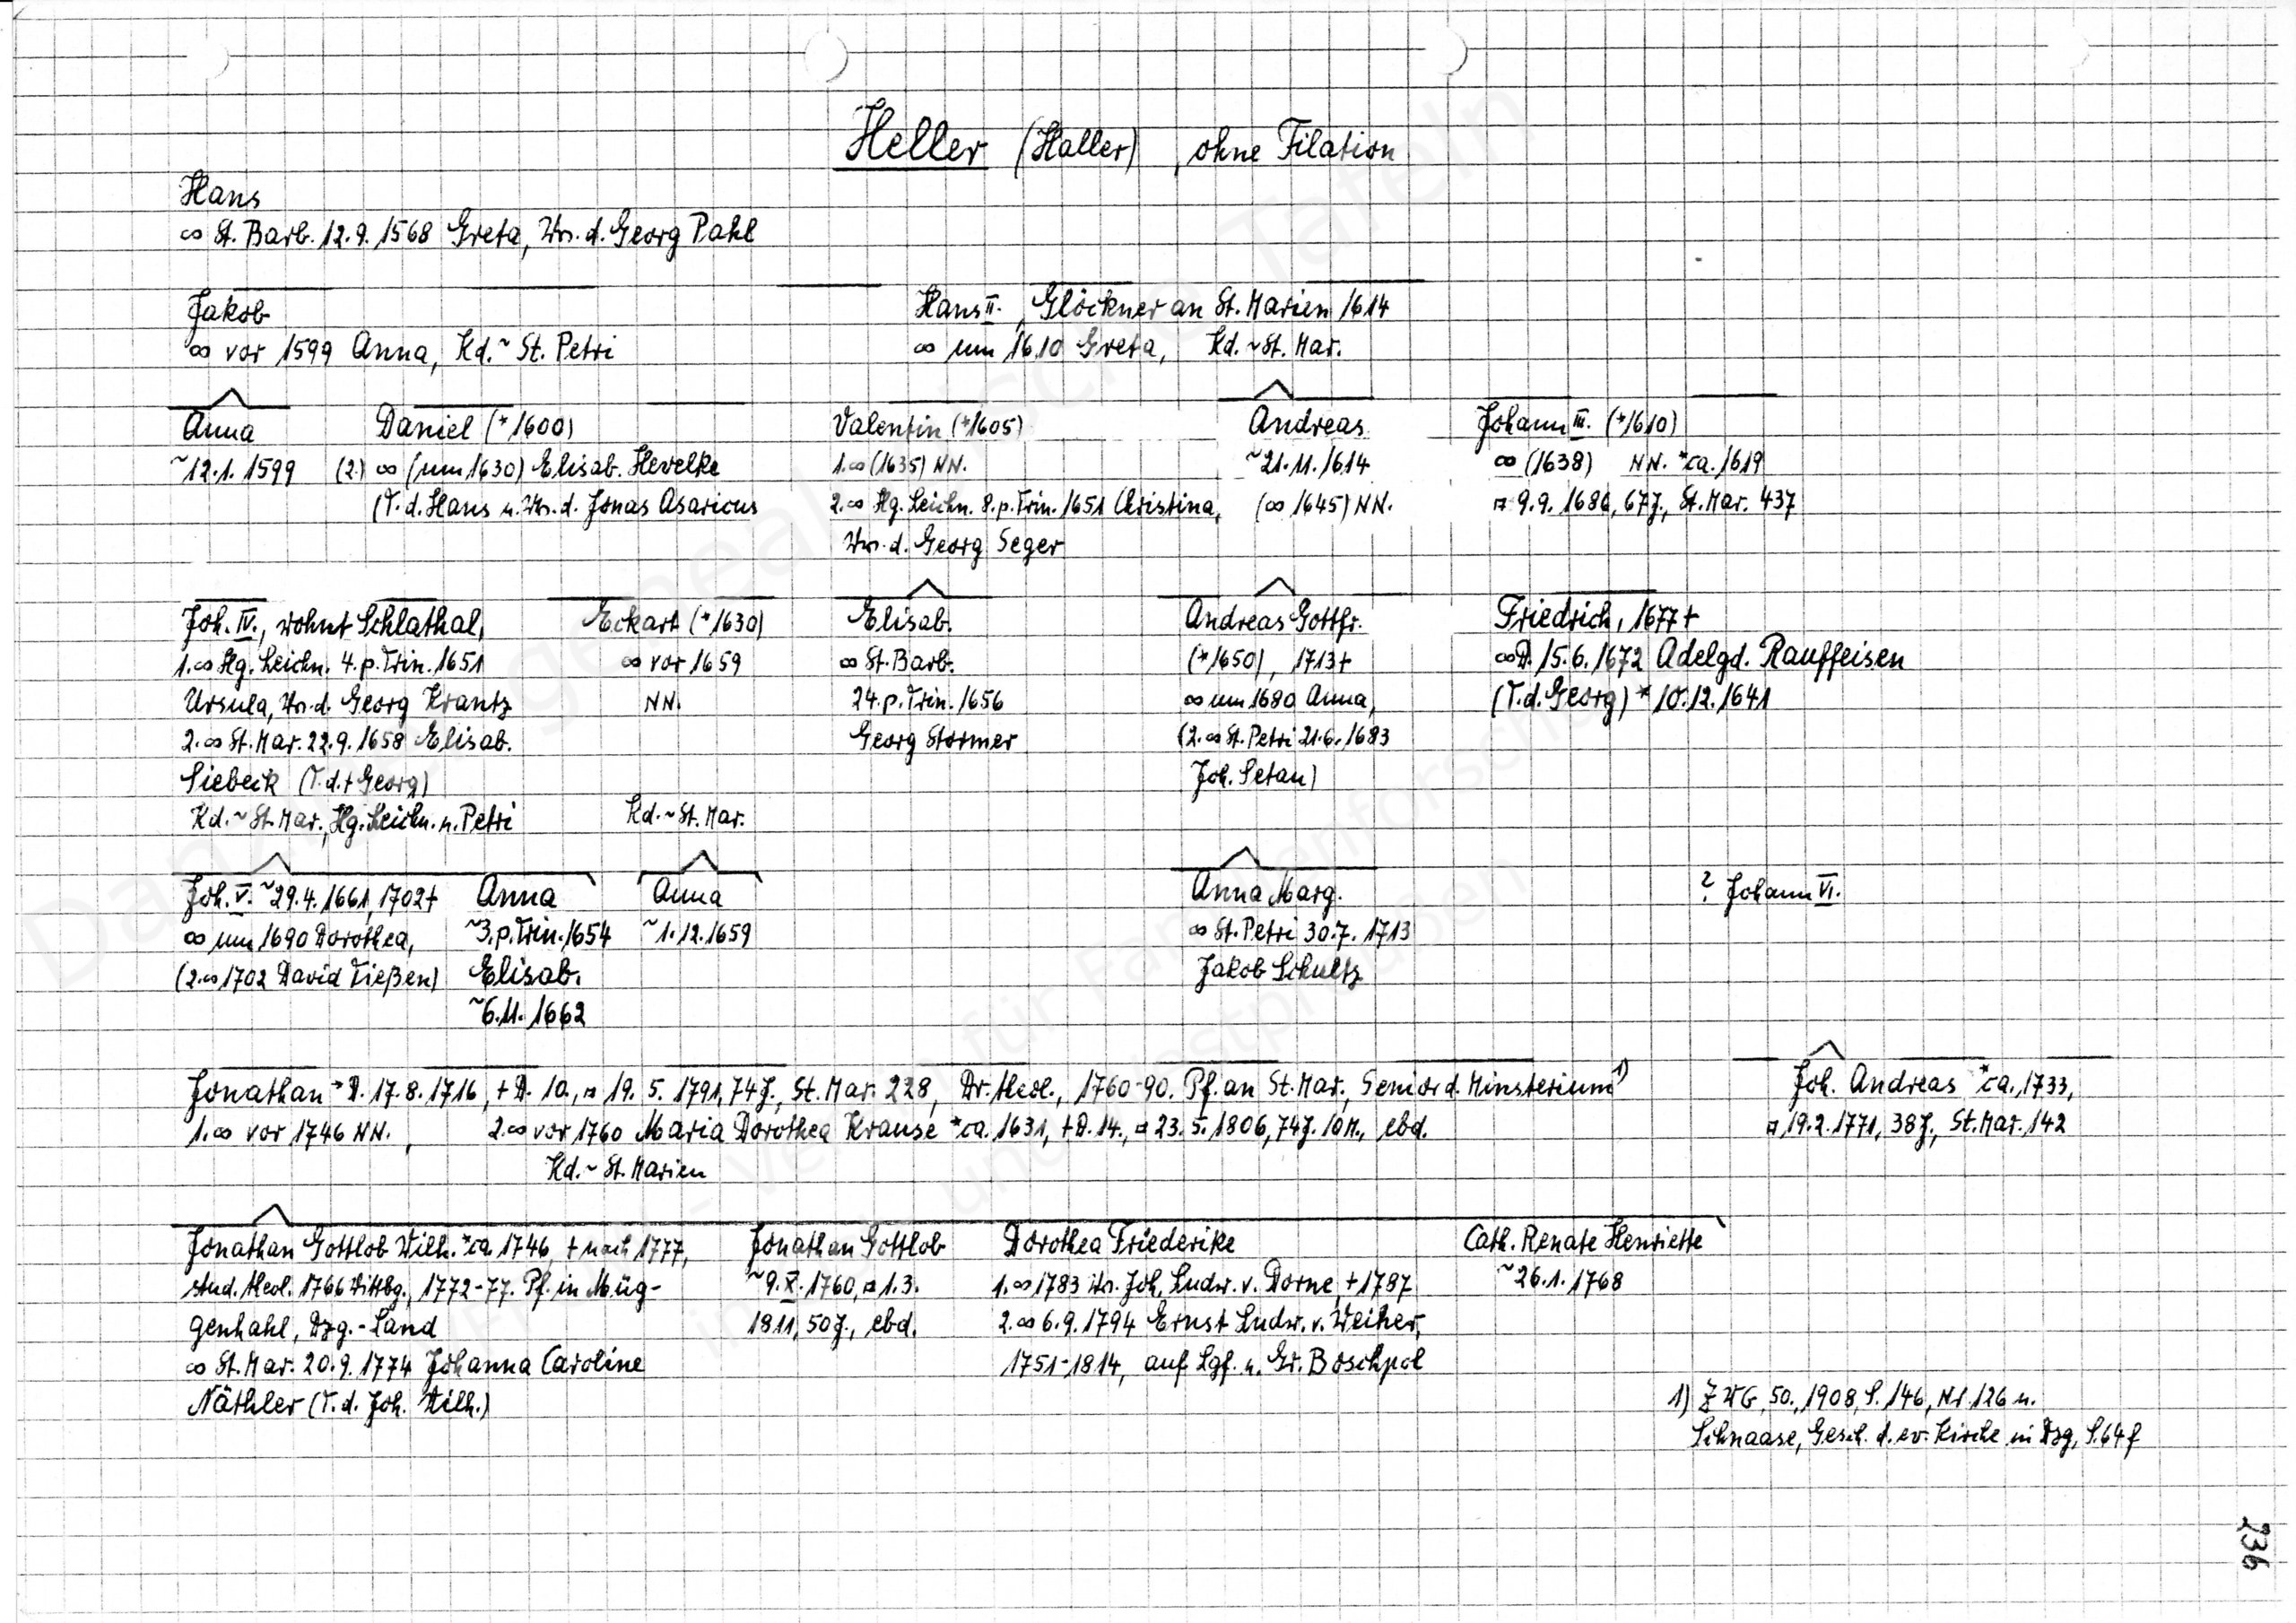 Heller (Haller), ohne Filation
Hans
∞ St. Barb. 12.9.1568 Greta, Ww. d. Georg Pahl
Jakob
∞ vor 1599 Anna, Kd. ~ St. Petri
Hans II., Glöckner an St. Marien 1614
∞ um 1610 Greta, Kd. ~ St. Mar.
Anna
~12.1.1599
Daniel (*1600)
(2.) ∞ (um 1630) Elisab. Hevelke
(T. d. Hans u. Ww. d. Jonas Asaricus
Valentin (*1605)
1. ∞ (1635) NN.
2. ∞ Hg. Leichn. 8. p. Trin. 1651 Christina,
Ww. d. Georg Seger
Andreas
~21.11.1614
(∞ 1645) NN.
Johann III. (*1610)
∞ (1638) NN. *ca. 1619
¤ 9.9.1686, 67J., St. Mar. 437
Joh. IV., wohnt Schlathal,
1. ∞ Hg. Leichn. 4. p. Trin. 1651
Ursula, Ww. d. Georg Krantz
2. ∞ St. Mar. 22.9.1658 Elisab.
Siebeck (T. d. + Georg)
Kd. ~ St. Mar., Hg. Leichn. u. Petri
Eckart (*1630)
∞ vor 1659
NN.
Kd. ~ St. Mar.
Elisab.
∞ St. Barb.
24. p. Trin. 1656
Georg Stormer
Andreas Gottfr.
(*1650), 1713+
∞ um 1680 Anna,
(2. ∞ St. Petri 21.6.1683
Joh. Setau)
Friedrich, 1677+
∞ D. 15.6.1672 Adelgd. Rauffeisen
(T. d. Georg) * 10.12.1641
Joh. V. ~29.4.1661, 1702+
∞ um 1690 Dorothea,
(2. ∞ 1702 David Tießen)
Anna
~3. p. Trin. 1654
Elisab.
~6.11.1662
Anna
~1.12.1659
Anna Marg.
∞ St. Petri 30.7.1713
Jakob Schultz
? Johann VI.
Jonathan * D. 17.8.1716, + D. 10., ¤ 19.5.1791, 74J., St. Mar. 228, Dr. theol., 1760-90. Pf. an St. Mar., Senior d. Minsterium 1)
1. ∞ vor 1746 NN., 2. ∞ vor 1760 Maria Dorothea Krause *ca. 1631, + D. 14., ¤ 23.5.1806, 74J. 10M., ebd.
Kd. ~ St. Marien
Joh. Andreas *ca. 1733,
¤ 19.2.1771, 38J., St. Mar. 142
Jonathan Gottlob Wilh. *ca. 1746, + nach 1777,
stud. theol. 1766 Wittbg., 1772-77. Pf. in Müg-
genhahl, Dzg.-Land
∞ St. Mar. 20.9.1774 Johanna Caroline
Näthler (T. d. Joh. Wilh.)
Jonathan Gottlob
~9.X.1760, ¤ 1.3.
1811, 50J., ebd.
Dorothea Friederike
1. ∞ 1783 Ww. Joh. Ludw. v. Dorne, + 1787
2. ∞ 6.9.1794 Ernst Ludw. v. Weiher,
1751-1814, auf Lgf. u. Gr. Boschpol
Cath. Renate Henriette
~26.1.1768
1) ZWG, 50., 1908, S. 146, Nr. 126 u.
Schnaase, Gesch. d. ev. Kirche in Dzg, S. 64f
236